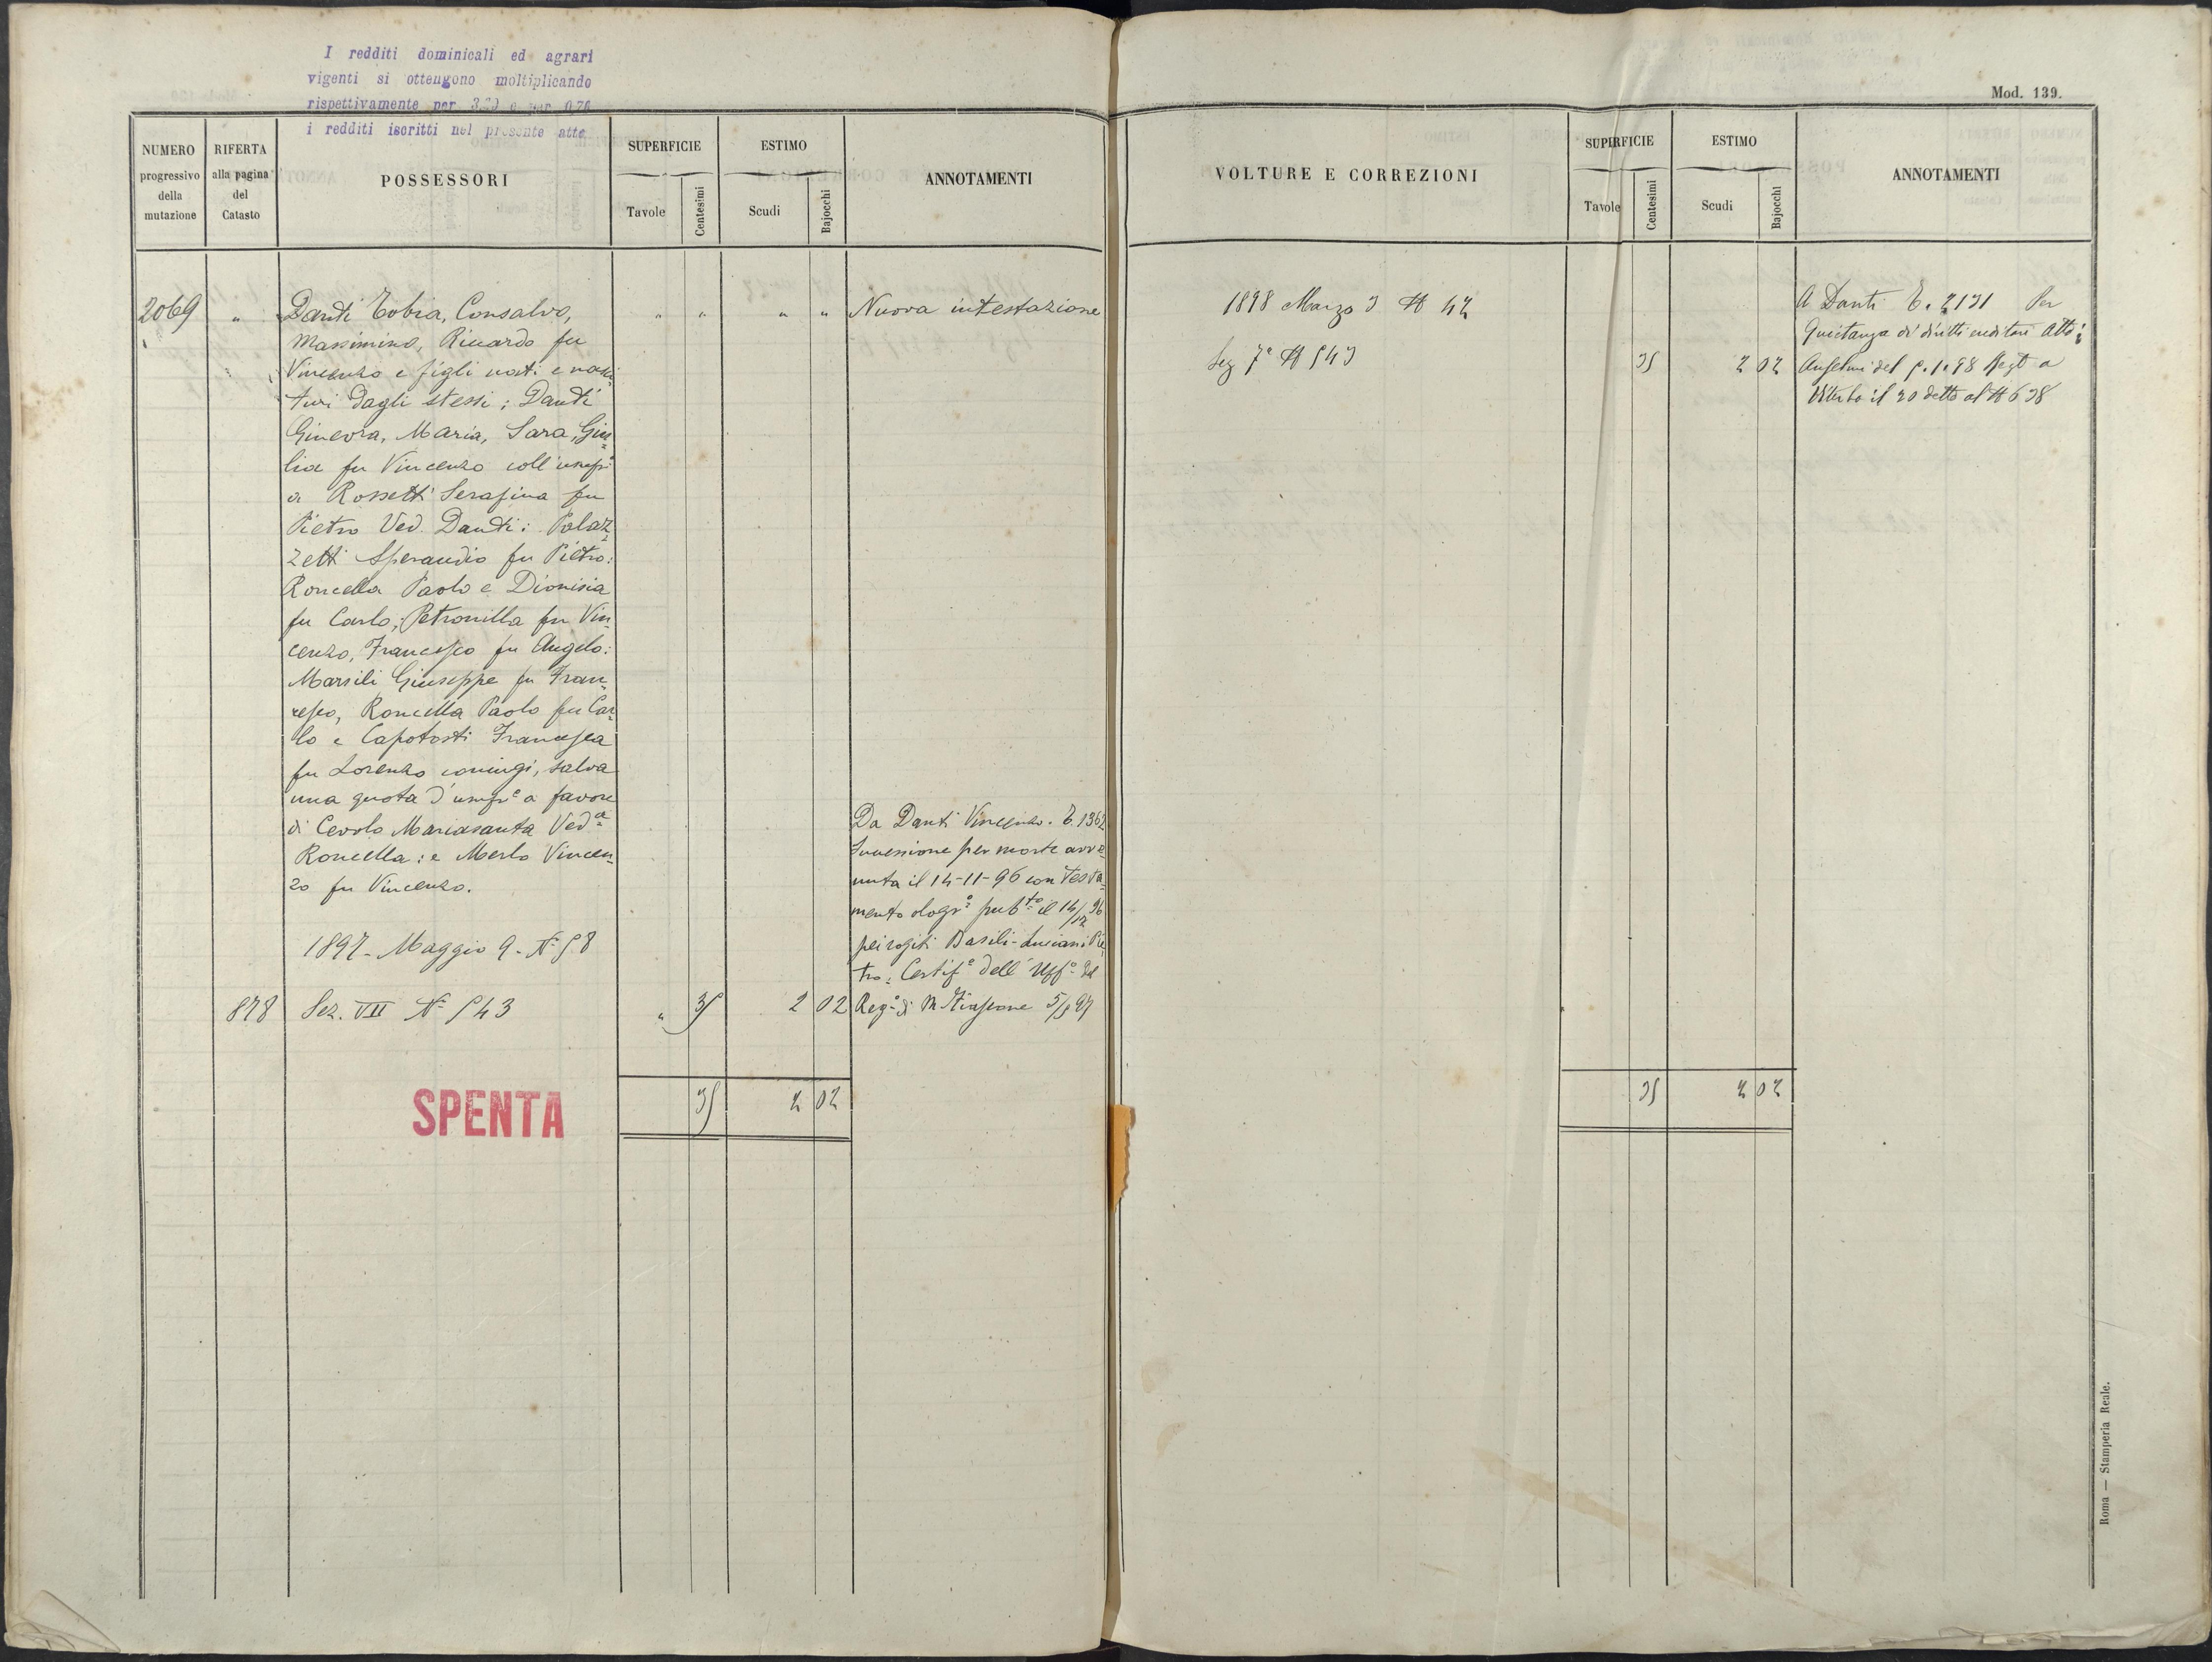 I redditi dominicali ed agrari
vigenti si ottengono moltiplicando
rispettivamente per 3.20 e per 0.76
i redditi iscritti nel presente atto.
NUMERO
progressivo
della
mutazione
RIFERTA
alla pagina
del
Catasto
POSSESSORI
SUPERFICIE
Tavole
Centesimi
ESTIMO
Scudi
Bajocchi
ANNOTAMENTI
2069 " Danti Tobia, Consalvo, " " " " Nuova intestazione
Massimino, Riccardo fu
Vincenzo e figli nati e nasci
turi dagli stessi; Danti
Ginevra, Maria, Sara, Giu
lia fu Vincenzo coll'usufo
a Rossetti Serafina fu
Pietro Ved. Danti: Palaz
zetti Sperandio fu Pietro:
Roncella Paolo e Dionisia
fu Carlo; Petronilla fu Vin
cenzo, Francesco fu Angelo:
Marsili Giuseppe fu Fran
cesco, Roncella Paolo fu Car
lo e Capotosti Francesca
fu Lorenzo coniugi, salva
una quota d'usufo a favore
di Cevolo Mariasanta Veda
Roncella: e Merlo Vincen
zo fu Vincenzo.
1897 - Maggio 9 - No 58
878 Sez. VII No 543 " 35 2 02
Da Danti Vincenzo. T. 1362
Successione per morte avve
nuta il 14-11-96 con Testa
mento ologro pubto il 14/12 96
pei rogiti Basili-Luciani Pie
tro; Certifo dell'Uffo del
Rego di M.Fiascone 5/5 97
35 2 02
SPENTA
Mod. 139.
VOLTURE E CORREZIONI
SUPERFICIE
Tavole
Centesimi
ESTIMO
Scudi
Bajocchi
ANNOTAMENTI
1898 Marzo 3 N 42
Sez 7a N 543 35 2 02
A Danti T. 2131 Per
Quietanza di diritti ereditari Atto:
Anselmi del 5.1.98 Regto a
Viterbo il 20 detto al N 638
35 2 02
Roma — Stamperia Reale.